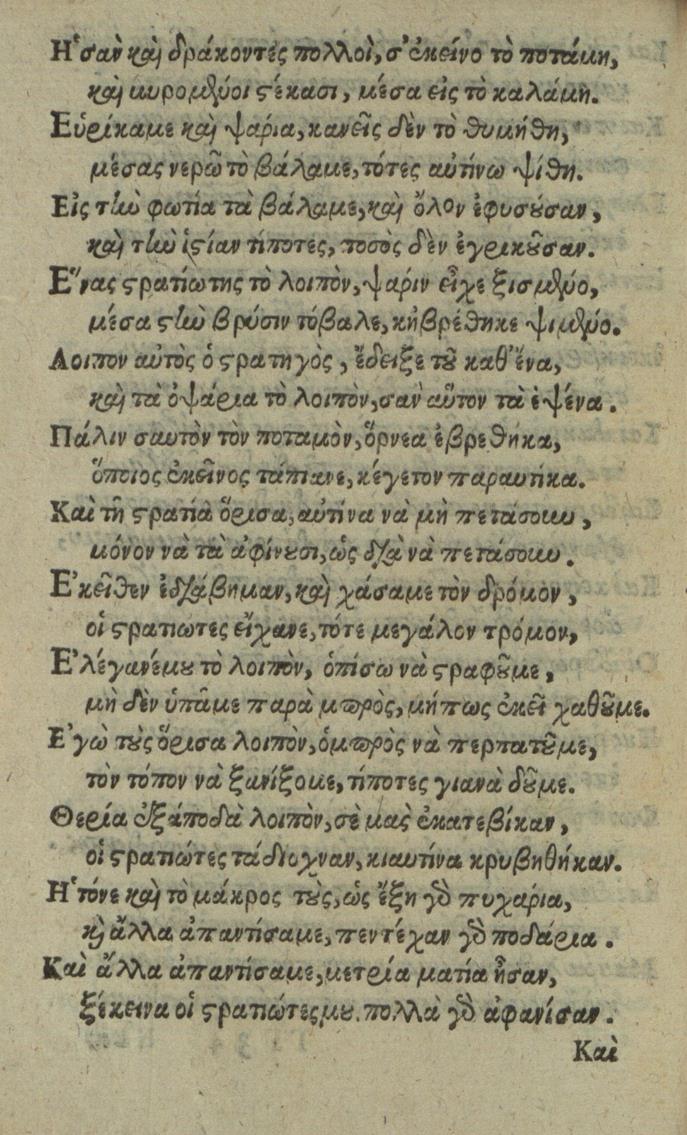 Ἦσαν καὶ δράκοντες πολλοὶ, σ' ἐκείνο τὸ ποτάμη,
καὶ κυρομδμοι ϛέκασι, μέσα εἰς τὸ καλάμη.
Εὑρίκαμε καὶ ψαρια, κανεῖς δὲν τὸ θυμήθη,
μέσας νερῶ τὸ βάλαμε, τότες αὐτίνω ψίθη.
Εἰς τὼ φωτία τὰ βάλαμε, καὶ ὅλον ἐφυσούσαν,
καὶ τὼ ἱϛίαν τίποτες, ποσὸς δὲν ἐγρικοῦσαν.
Ἕνας ϛρατιώτης τὸ λοιπὸν, ψάριν εἶχε ξισμένο,
μέσα ϛτὼ βρύσιν τόβαλε, κηβρέθηκε ψιμένο.
Λοιπον αὐτὸς ὁ ϛρατηγὸς, ἔδειξε τοῦ καθ' ἕνα,
καὶ τὰ ὀψάρια τὸ λοιπὸν, σαν αὗτον τὰ ἐψένα.
Πάλιν σαυτὸν τὸν ποταμὸν, ὄρνεα ἐβρεθήκα,
ὅποιος ἐκεῖνος τάπιανε, κέγετον παραυτίκα.
Καὶ τῆ ϛρατιὰ ὅρισα, αὐτίνα νὰ μὴ πετάσουν,
μόνον νὰ τὰ ἀφίνουσι, ὡς διὰ νὰ πετάσουν.
Ἐκεῖθεν ἐδιάβημαν, καὶ χάσαμε τὸν δρόμὸν,
οἱ ϛρατιωτες εἴχανε, τότε μεγάλον τρόμον,
Ἐλέγανέμου τὸ λοιπὸν, ὀπίσω νὰ ϛραφοῦμε,
μὴ δὲν ὑπᾶμε παρὰ μπρὸς, μήπως ἐκεῖ χαθοῦμε.
Ἐγὼ τοὺς ὅρισα λοιπὸν, ὀμπρὸς νὰ περπατοῦμε,
τὸν τόπον νὰ ξανίξομε, τίποτες γιανὰ δοῦμε.
Θερία ἐξάποδὰ λοιπὸν, σὲ μας ἐκατεβίκαν,
οἱ ϛρατιώτες τάδιοχναν, κιαυτίνα κρυβηθήκαν.
Ἦτόνε καὶ τὸ μάκρος τοὺς, ὡς ἕξη γδ πυχάρια,
κὶ ἄλλα ἀπαντίσαμε, πεντέχαν γδ ποδάρια.
Καὶ ἄλλα ἀπαντίσαμε, μετρία ματία ἦσαν,
ξέκεινα οἱ ϛρατιώτεςμου. πολλὰ γδ ἀφανίσαν.
Καὶ